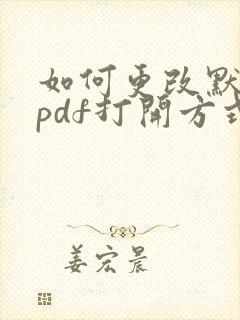 如何更改默
pdf打開方式
姜宏晨